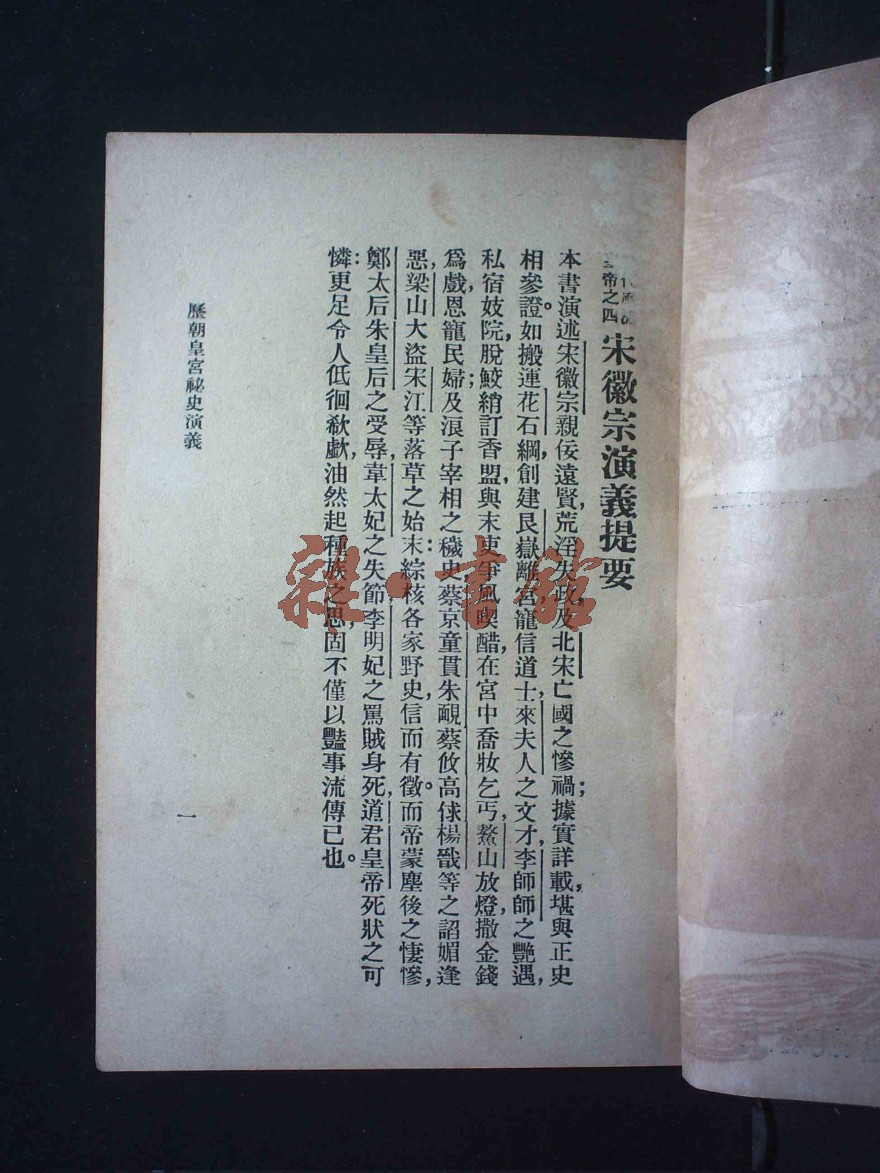 帝之四
宋徽宗演義提要
本書演述宋徽宗親佞遠賢，荒淫失政，及北宋亡國之慘禍；據實詳載，堪與正史
相參證。如搬運花石綱，創建艮嶽離宮，寵信道士，來夫人之文才，李師師之艷遇，
私宿妓院，脫鮫綃訂香盟；與末吏爭風喫醋，在宮中喬妝乞丐，鰲山放燈，撒金錢
爲戲，恩寵民婦，及浪子宰相之穢史，蔡京童貫朱勔蔡攸高俅楊戩等之諂媚逢
惡，梁山大盜宋江等落草之始末：綜核各家野史，信而有徵。而帝蒙塵後之悽慘，
鄭太后朱皇后之受辱，韋太妃之失節，李明妃之罵賊身死，道君皇帝死狀之可
憐：更足令人低徊欷歔，油然起種族之思，固不僅以豔事流傳已也。
歷朝皇宮祕史演義
一
雜·書館